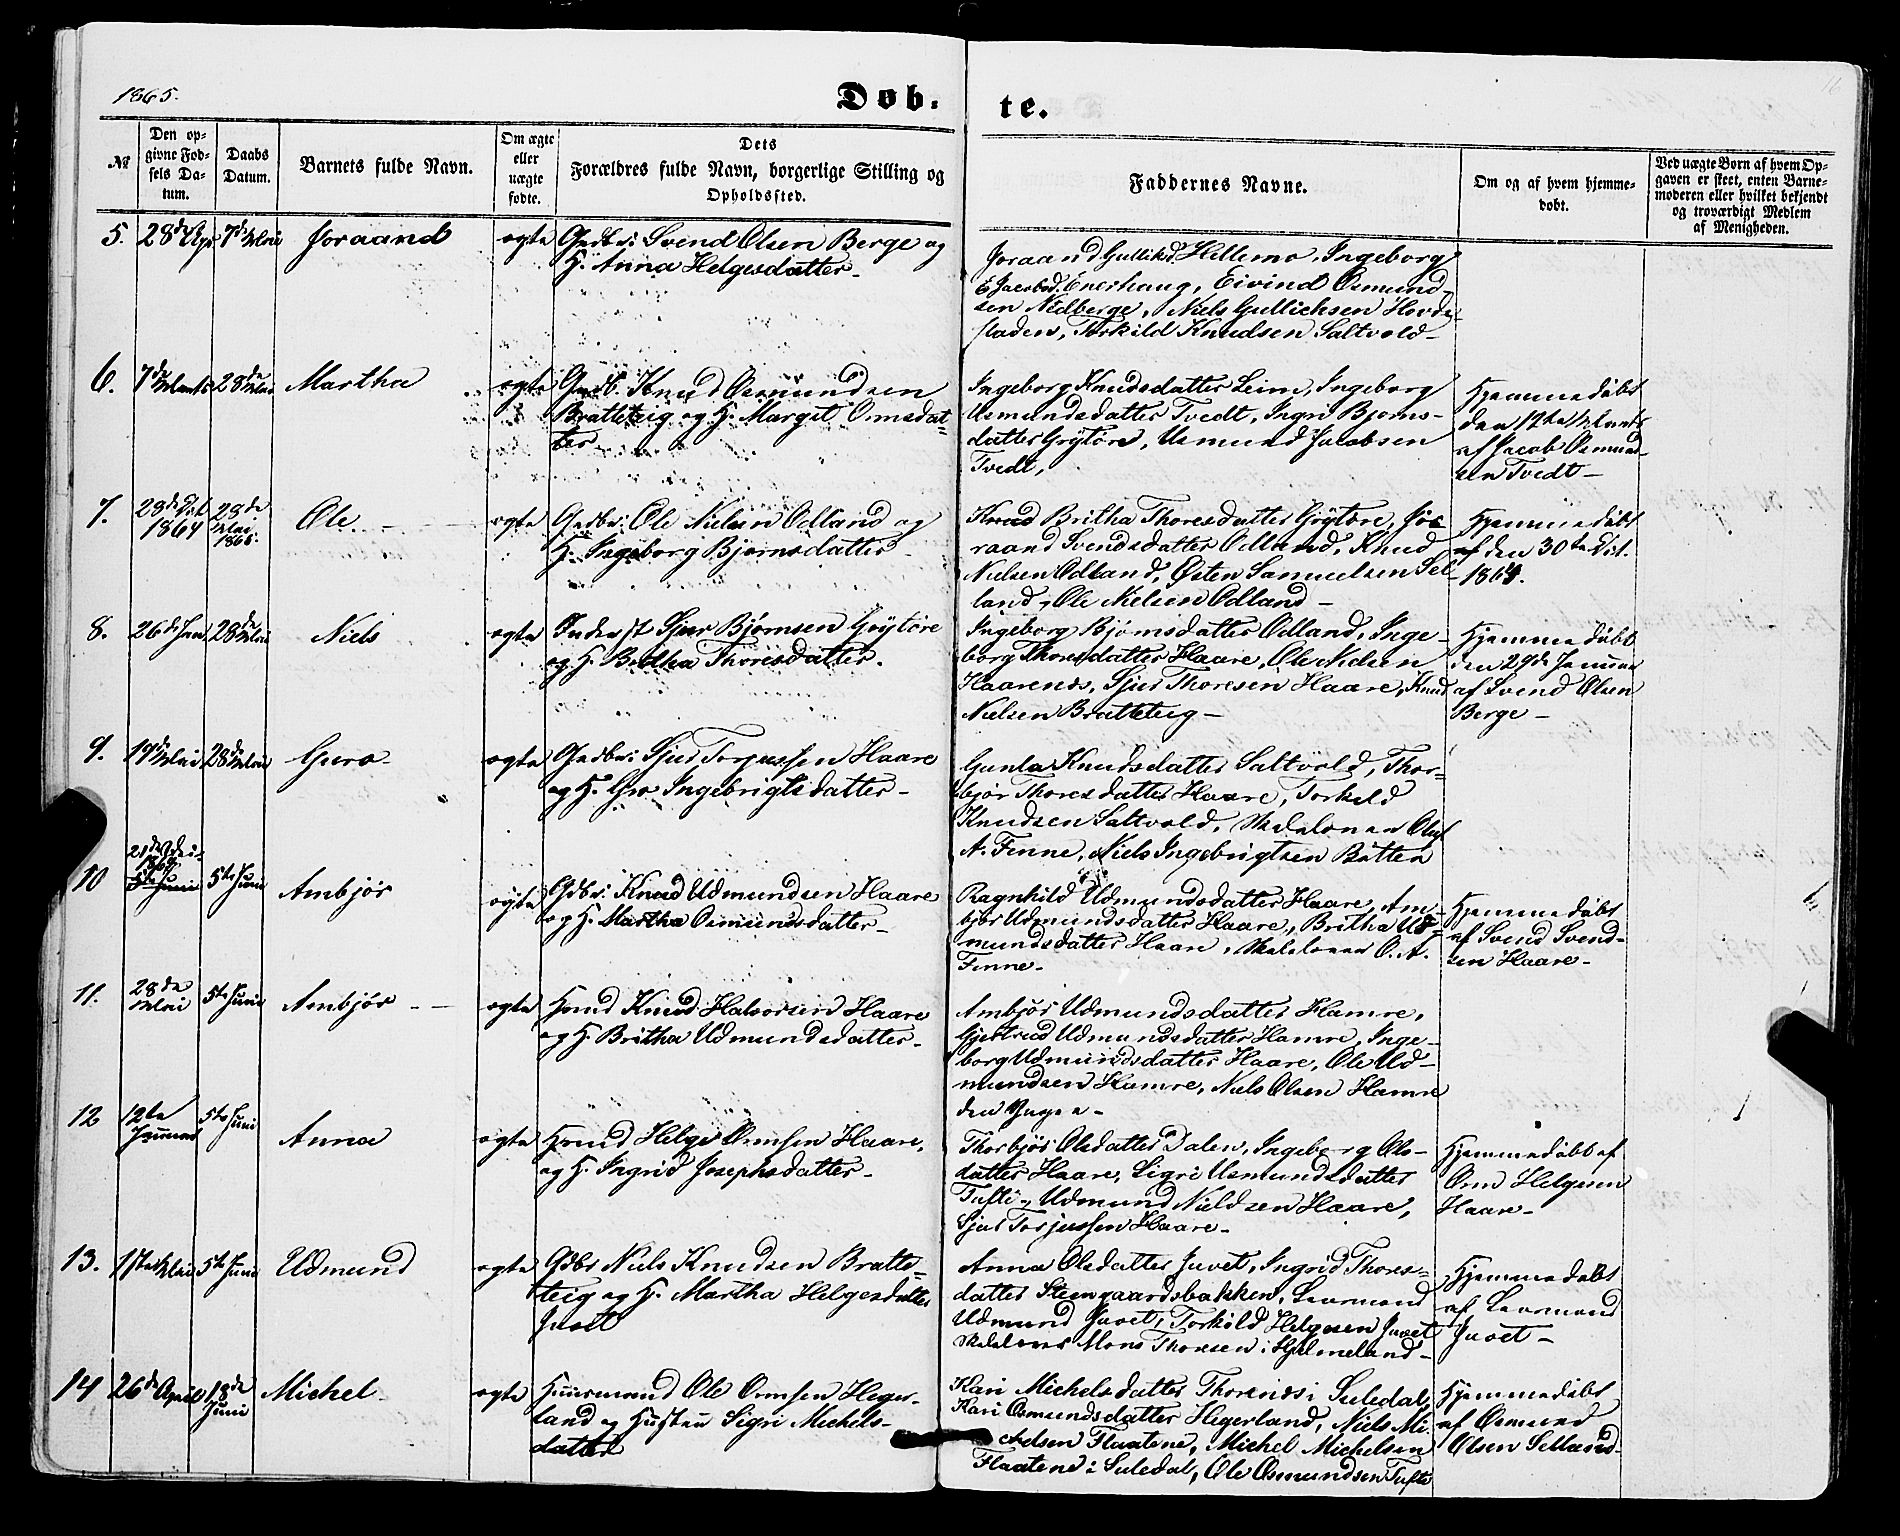 1865.
16
Døb-
te.
№
Den op-
givne Fød-
sels Da-
tum.
Daabs
Datum.
Barnets fulde Navn.
Om ægte
eller
uægte
fødte.
Dets
Forældres fulde Navn, borgerlige Stilling og
Opholdssted.
Faddernes Navne.
Om og af hvem hjemme-
døbt.
Ved uægte Børn af hvem Op-
gaven er skeet, enten Barne-
moderen eller hvilket bekjendt
og troværdigt Medlem
af Menigheden.
5. 28de Apr 7de Mai Joraand ægte Gadbr: Svend Olsen Berge og
H. Anna Helgesdatter-
Joraand Gulliksd. Hellemo, Ingeborg
Jacobsd. Enerhaug, Eivind Osmund-
sen Nedberge, Niels Gullichsen Hovde-
staden, Torkild Knudsen Saltvold-
6. 7de Marts 28de Mai Martha ægte Gadb. Knud Osmundsen
Bratteteig og H. Margit Ormsdat-
ter-
Ingeborg Knudsdatter Leim, Ingeborg
Usmundsdatter Tvedt, Ingri Bjørns-
datter Grytøre, Usmund Jacobsen
Tvedt,
Hjemmedøbt
den 12te Marts
af Jacob Osmund-
sen Tvedt-
7. 28de Oct
1864 28de
Mai
1865. Ole. ægte Gadbr: Ole Nielsen Odland og
H. Ingeborg Bjørnsdatter
Knud Britha Thoresdatter Grytøre, Jo-
raand Svendsdatter Odland, Knud
Nielsen Odland, Østen Samuelsen Sel-
land, Ole Nielsen Odland-
Hjemmedøbt
af den 30te Oct.
1864.
8. 26de Jan 28de Mai Niels ægte Inderst Sjur Bjørnsen Grytøre
og H. Britha Thoresdatter.
Ingeborg Bjørnsdatter Odland, Inge-
borg Thoresdatter Haare, Ole Nielsen
Haarenes, Sjur Thoresen Haare, Knud
Nielsen Bratteteig-
Hjemmedøbt
den 29de Januar
af Svend Olsen
Berge-
9. 19de Mai 28de Mai Guro- ægte Gadbr: Sjur Torjussen Haare
og H. Gro Ingebrigtsdatter-
Gunla Knudsdatter Saltvold, Thor-
bjør Thoresdatter Haare, Torkild
Knudsen Saltvold, Skolelærer Oluf
A. Finne, Niels Ingebrigtsen Botten
10 5te Juni 5te Juni Ambjør ægte Gdbr: Knud Udmundsen Haare
og H. Martha Osmundsdatter-
Ragnhild Udmundsdatter Haare, Am-
bjør Udmundsdatter Haare, Britha Ud-
mundsdatter Haare, Skolelærer O. A.
Finne-
Hjemmedøbt
af Svend Svend-
sen Haare-
11. 28de
Mai 5te Juni Ambjør - - ægte Hmd Knud Halvorsen Haare
og H. Britha Udmundsdatter-
Ambjør Udmundsdatter Hamre,
Gjertrud Udmundsdatter Hamre, Inge-
borg Udmundsdatter Haare, Ole Ud-
mundsen Hamre, Niels Olsen Hamre
den Yngre-
12 12te
Januar 5te Juni Anna ægte Hmd Helge Ormsen Haare,
og H. Ingrid Josephsdatter-
Thorbjør Olsdatter Dalen, Ingeborg Ols-
datter Haare, Sigri Usmundsdatter
Tufte, Udmund Nielsen Haare,
Sjur Torjussen Haare-
Hjemmedøbt af
Orm Helgesen
Haare-
13. 17te Mai 5te Juni Udmund ægte Gdbr Niels Knudsen Bratte-
teig og H. Martha Helgesdatter
Juvet
Anna Olsdatter Juvet, Ingrid Thores-
datter Steengaardsbakken, Laurmand
Udmund Juvet, Torkild Helgesen Juvet
Skolelærer Mons Thoresen i Hjelmeland-
Hjemmedøbt
af Laurmand
Juvet-
14 26de April 18de
Juni Michel- ægte Huusmand Ole Ormsen Heger-
land og Hustru Sigri Michels-
datter
Kari Michelsdatter Thorenes i Suledal,
Kari Osmundsdatter Hegerland, Niels Mi-
chelsen Flaatene, Michel Michelsen
Flaatene i Suledal, Ole Osmundsen Tufte
Hjemmedøbt
af Osmund
Olsen Selland-